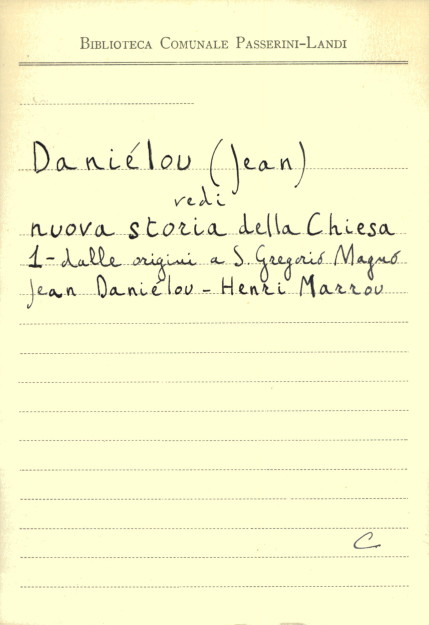 BIBLIOTECA COMUNALE PASSERINI-LANDI
Daniélou (Jean)
vedi
nuova storia della Chiesa
1- dalle origini a S. Gregorio Magno
Jean Daniélou - Henri Marrou
C